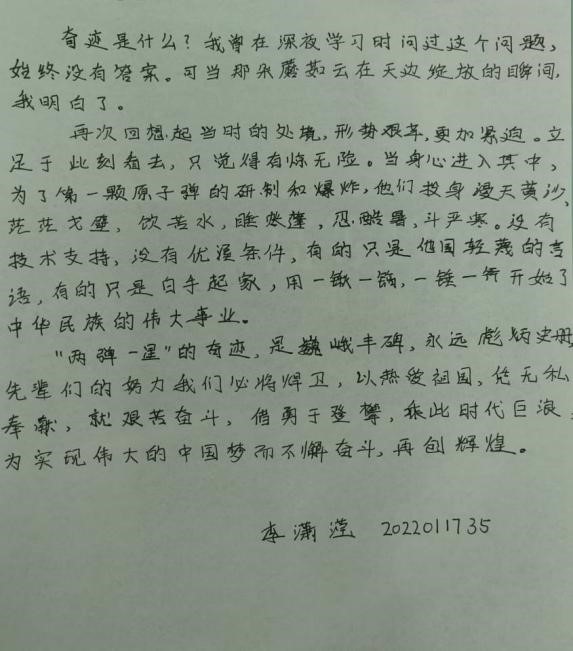 奇迹是什么？我曾在深夜学习时问过这个问题，
始终没有答案。可当那朵蘑菇云在天边绽放的瞬间，
我明白了。
再次回想起当时的处境，形势艰辛，更加紧迫。立
足于此刻看去，只觉得有惊无险。当身心进入其中，
为了第一颗原子弹的研制和爆炸，他们投身漫天黄沙，
茫茫戈壁，饮苦水，睡帐篷，忍酷暑，斗严寒。没有
技术支持，没有优渥条件，有的只是他国轻蔑的言
语，有的只是白手起家，用一锹一镐，一锤一凿开始了
中华民族的伟大事业。
“两弹一星”的奇迹，是巍峨丰碑，永远彪炳史册，
先辈们的努力我们必将捍卫，以热爱祖国，凭无私
奉献，就艰苦奋斗，借勇于登攀，乘此时代巨浪，
为实现伟大的中国梦而不懈奋斗，再创辉煌。
李潇滢 2022011735